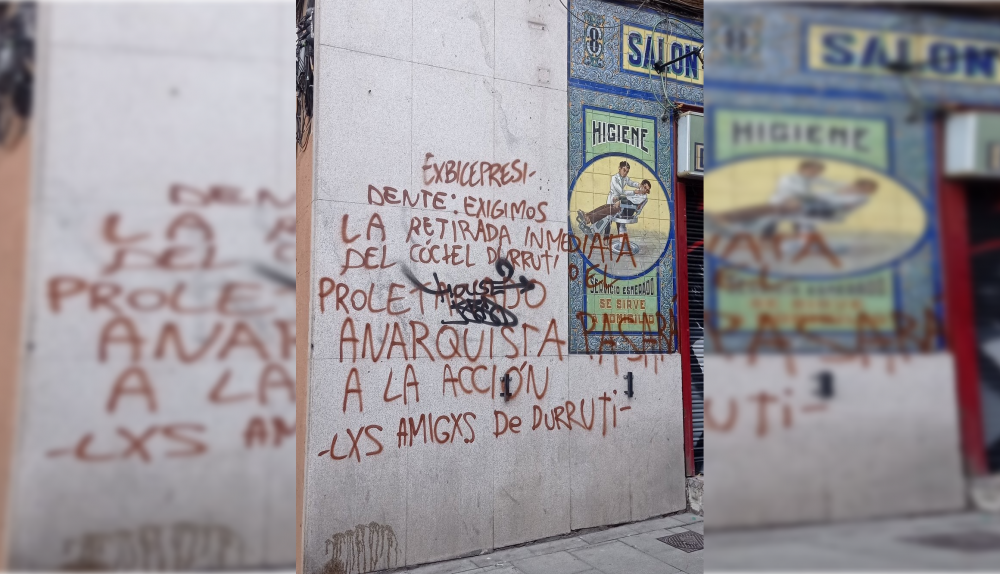 EXBICEPRESI-
DENTE: EXIGIMOS
LA RETIRADA INMEDIATA
DEL CÓCTEL DURRUTI O EL
PROLETARIADO
ANARQUISTA PASARÁ
A LA ACCIÓN
-LXS AMIGXS De DURRUTI-
8
SALON
HIGIENE
SERVICIO ESMERADO
SE SIRVE
A DOMICILIO